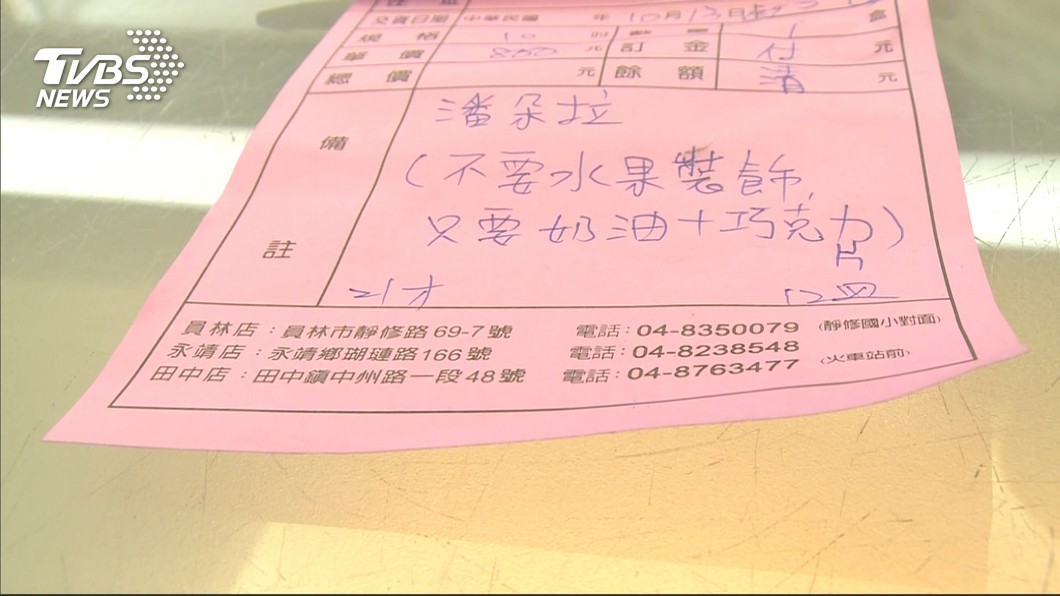 TVBS
NEWS
交貨日期 中華民國 年 10月13日
規格 10 吋 數量 1
單價 800 元 訂金 付 元
總價 元 餘額 清 元
備註
潘朵拉
(不要水果裝飾,
只要奶油+巧克力)
片
21才 12皿
員林店：員林市靜修路69-7號 電話：04-8350079 (靜修國小對面)
永靖店：永靖鄉瑚璉路166號 電話：04-8238548
田中店：田中鎮中州路一段48號 電話：04-8763477 (火車站前)